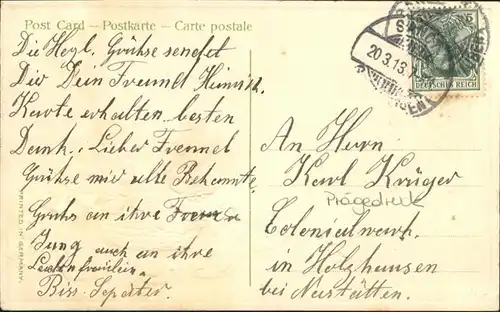 Post Card – Postkarte – Carte postale
Die Herzl. Grüße sendet
Dir Dein Freund Heinrich.
Karte erhalten. besten
Dank. Lieber Freund
Grüße mir alle Bekannte
Gruß an ihre
Jung auch an ihre
Bis Später.
PRINTED IN GERMANY.
20.3.13.
5
DEUTSCHES REICH
An Herrn
Karl Krüger
Prägedruck
Colonialwarh.
in Holzhausen
bei Neustätten.